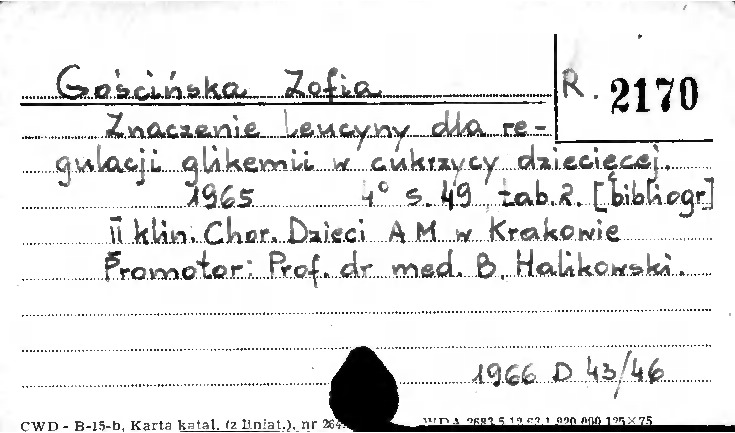 Gościńska Zofia
R. 2170
Znaczenie leucyny dla re-
gulacji glikemii w cukrzycy dziecięcej.
1965 4° s. 49 tab. 2. [bibliogr]
II klin. Chor. Dzieci AM w Krakowie
Promotor: Prof. dr med. B. Halikowski.
1966 D 43/46
CWD - B-15-b, Karta katal. (z liniat.), nr
125×75